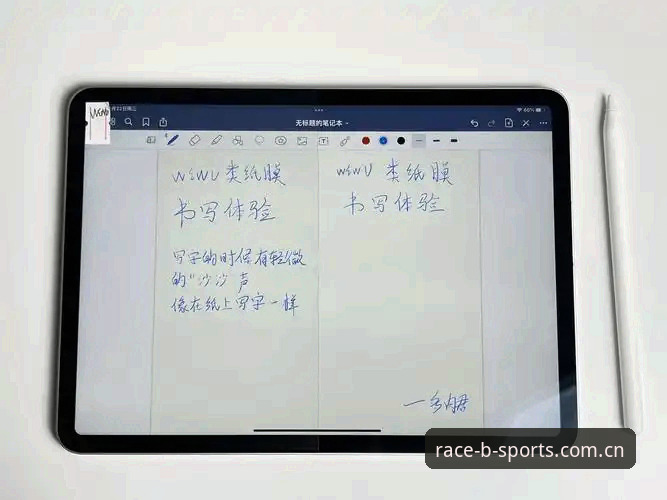 月22日周三
66%
无标题的笔记本
WiWU 类纸膜
书写体验
写字的时候有轻微
的“沙沙声
像在纸上写字一样
WiWU 类纸膜
书写体验
race-b-sports.com.cn